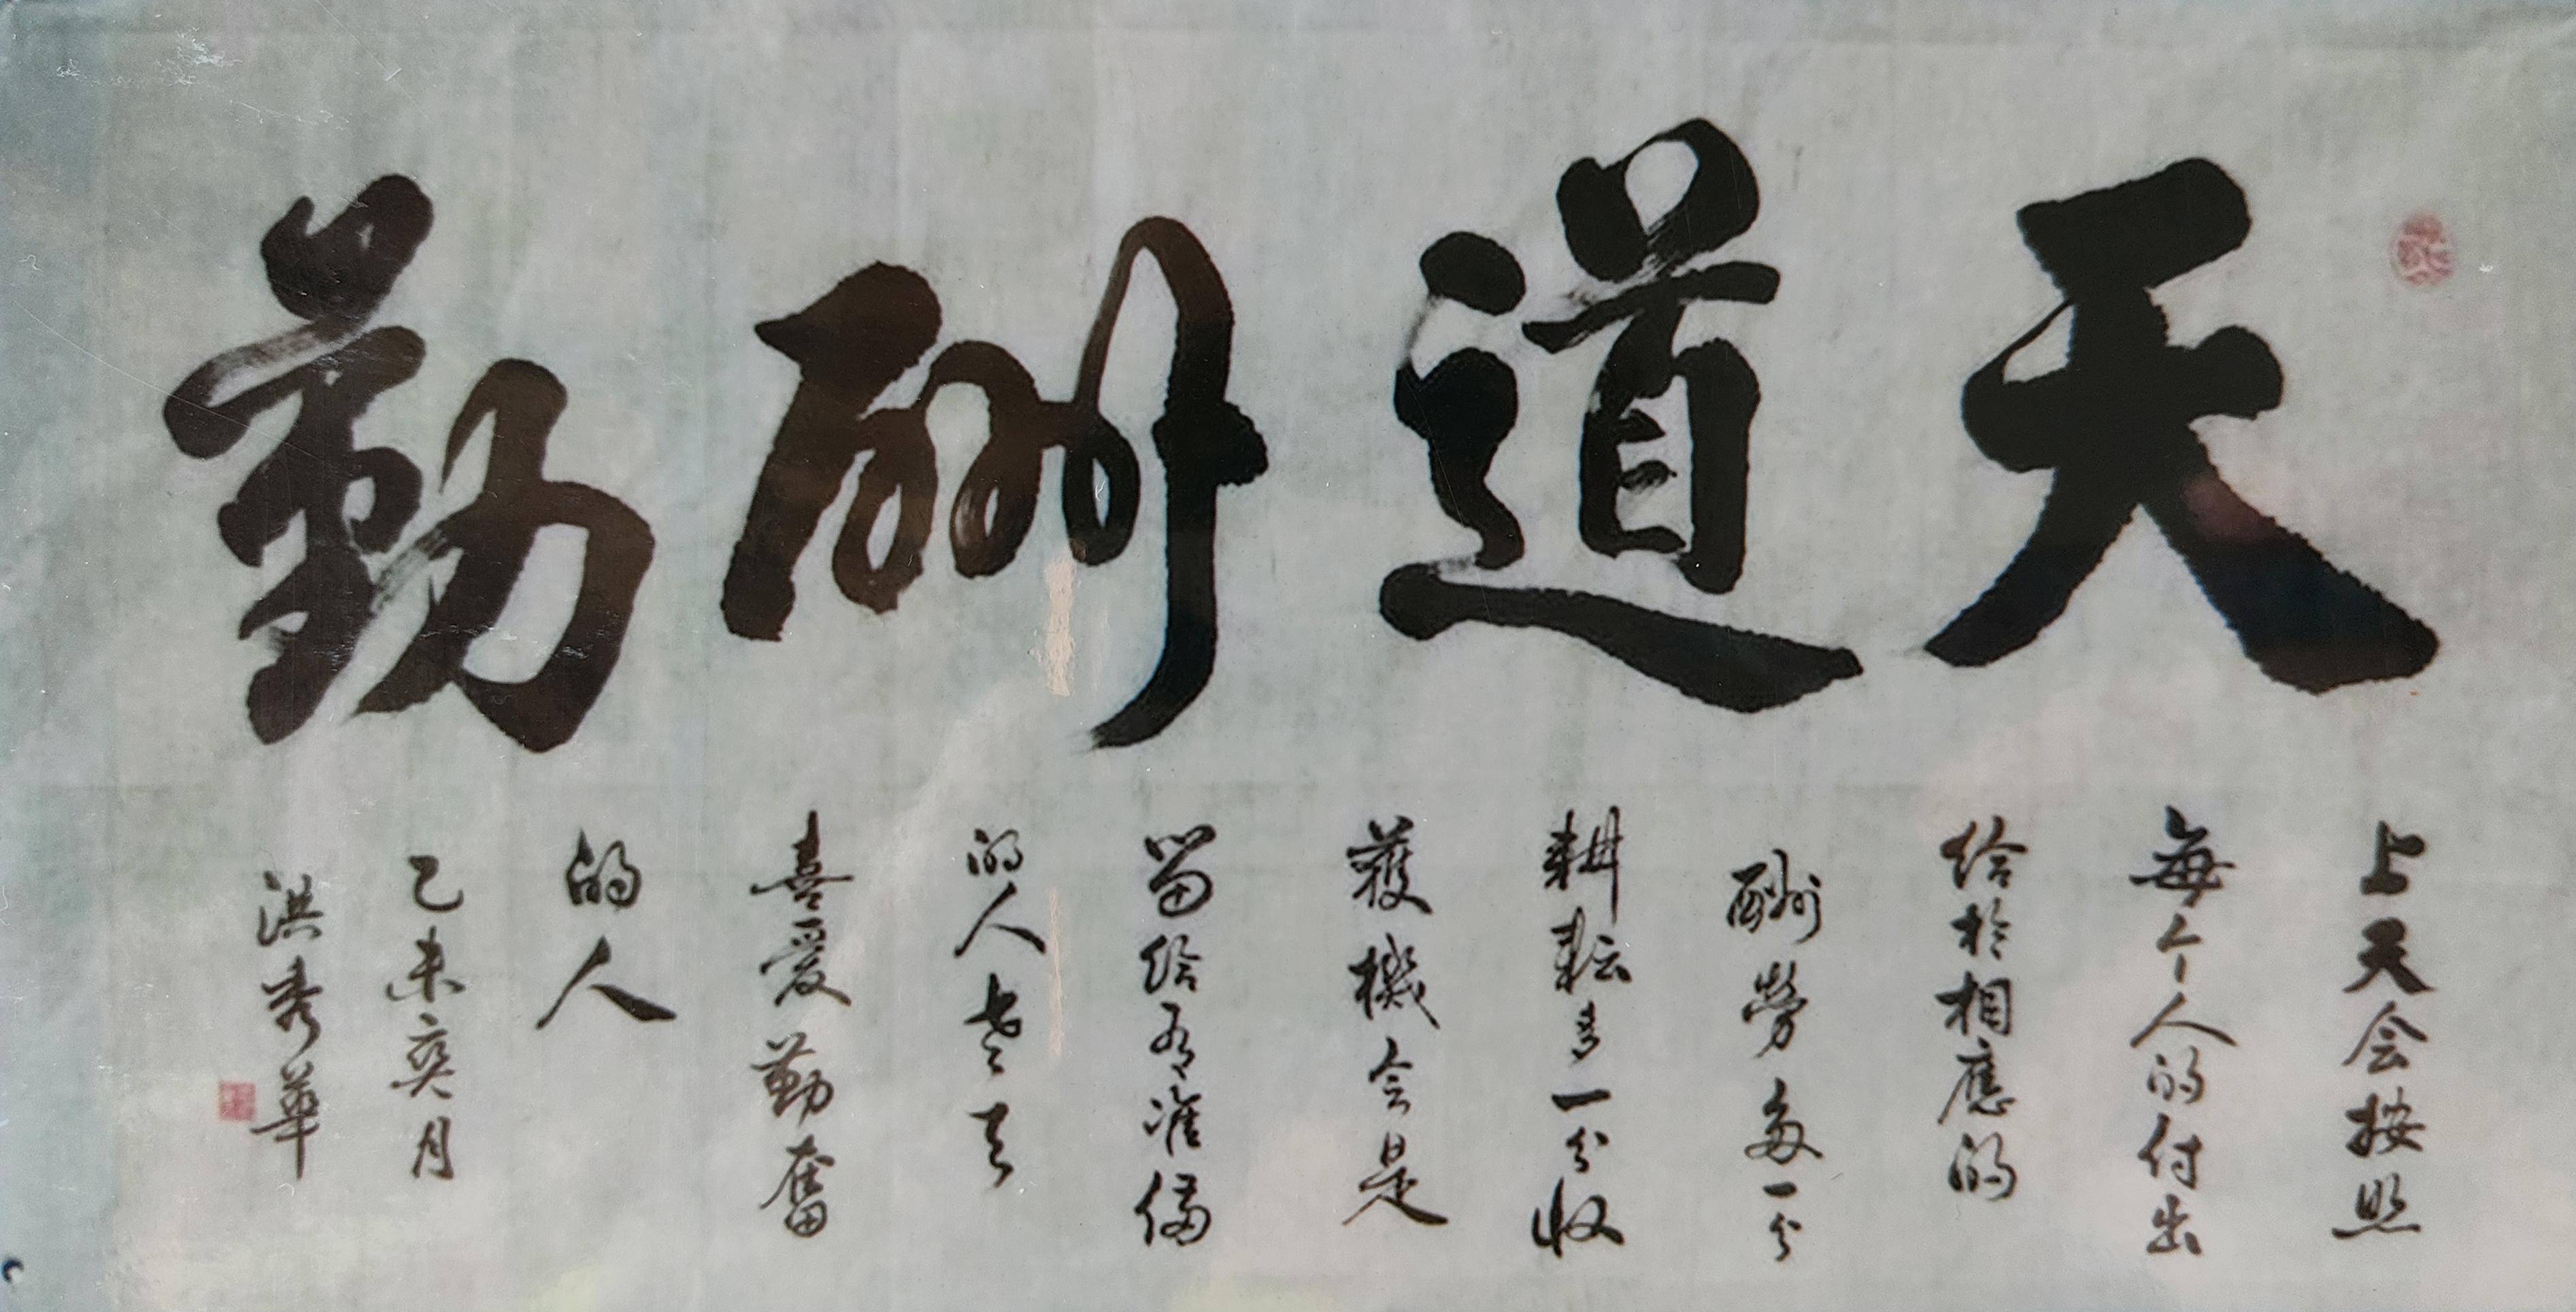 天道酬勤
上天会按照
每个人的付出
给於相應的
酬勞每一分
耕耘多一分收
獲機会是
留给有準備
的人老天
喜爱勤奮
的人
乙未癸月
洪秀華